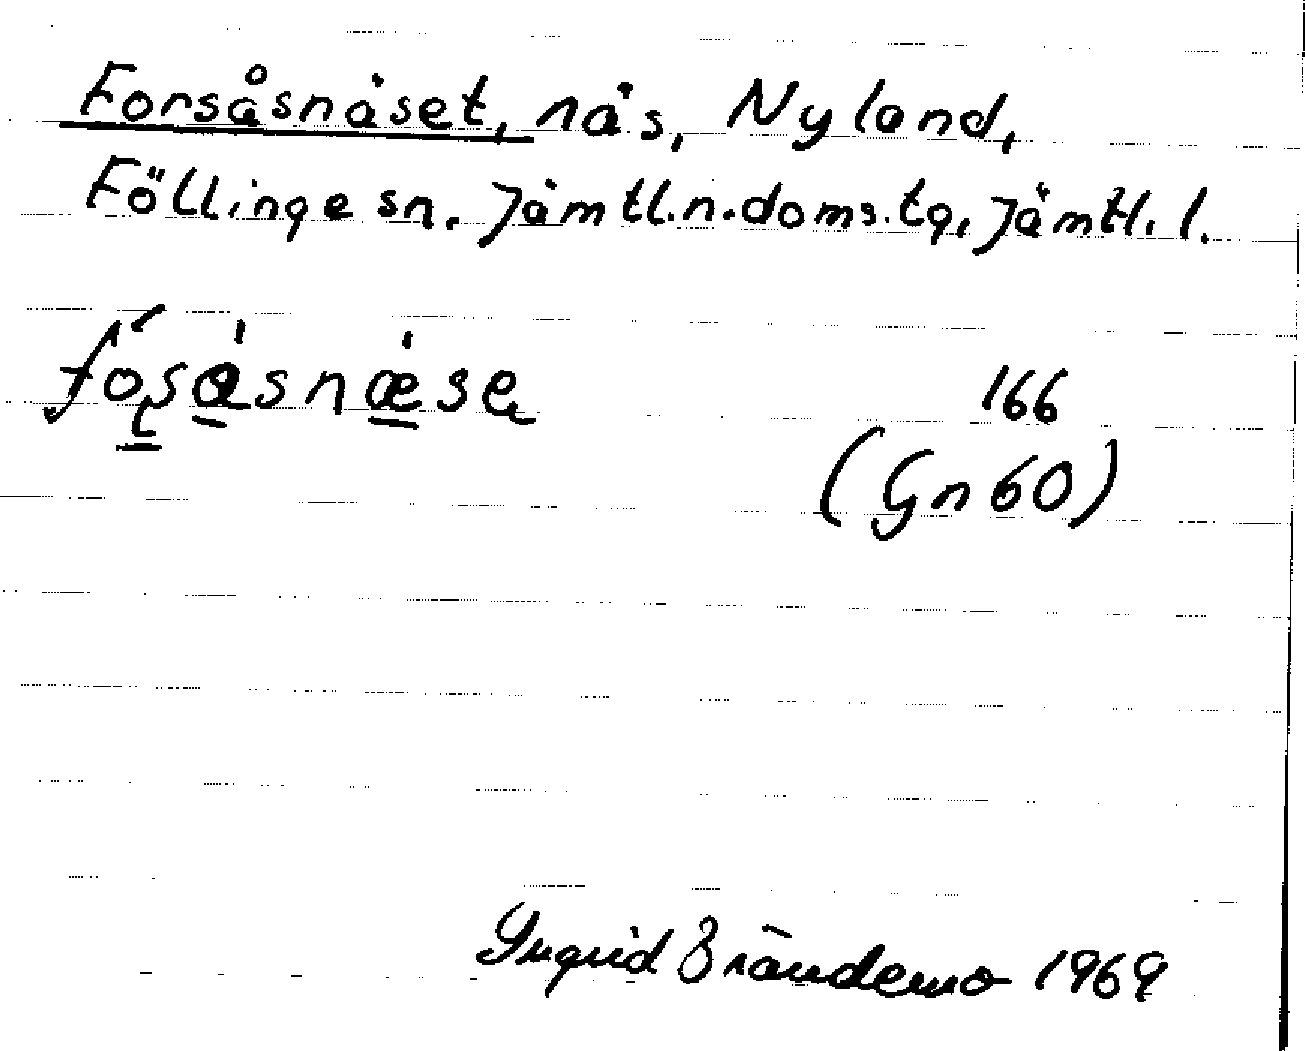 Forsåsnäset, näs, Nyland,
Föllinge sn. Jämtl.n.doms.tg, Jämtl. l.
166
(Gn 60)
Ingrid Brändemo 1969